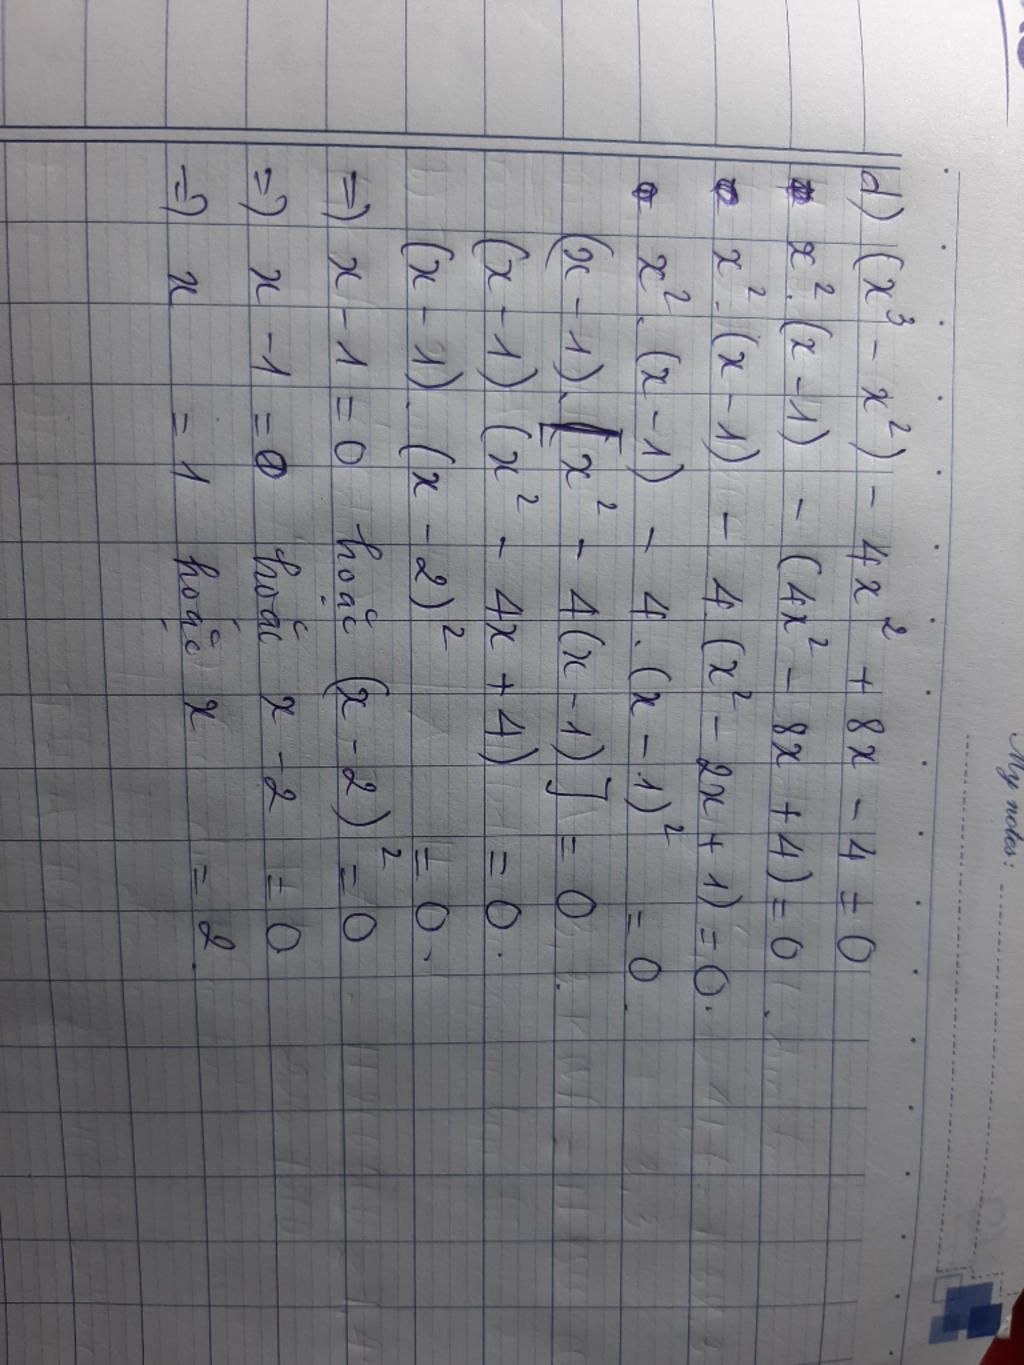 My notes:
d) (x³ - x²) - 4x² + 8x - 4 = 0
x².(x-1) - (4x² - 8x + 4) = 0.
x².(x-1) - 4.(x² - 2x + 1) = 0.
x².(x-1) - 4.(x-1)² = 0.
(x-1).[x² - 4(x-1)] = 0.
(x-1)(x² - 4x + 4) = 0.
(x-1).(x-2)² = 0.
=) x-1 = 0 hoặc (x-2)² = 0
=) x-1 = 0 hoặc x-2 = 0
=) x = 1 hoặc x = 2.